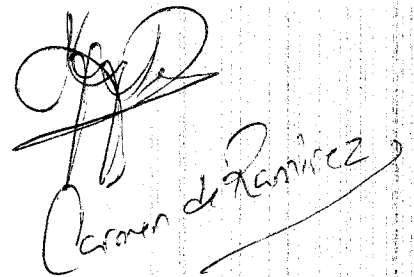 Carmen de Ramirez